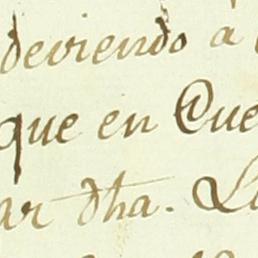 deviendo a
que en Cue
ar dha. La